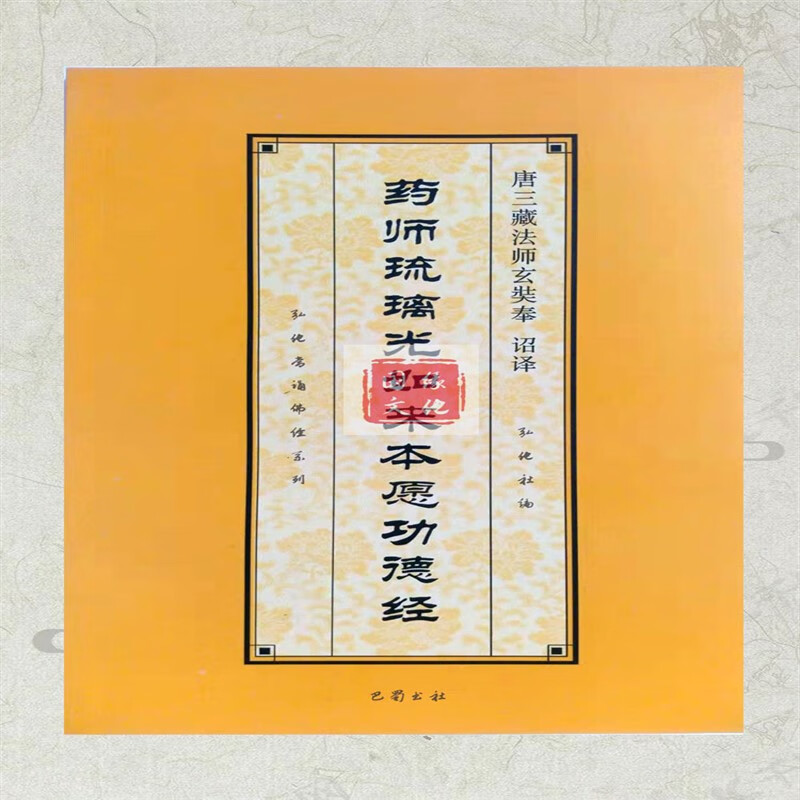 唐三藏法师玄奘奉 诏译
弘化社编
药师琉璃光如来本愿功德经
弘化常诵佛经系列
巴蜀出社
缘文化